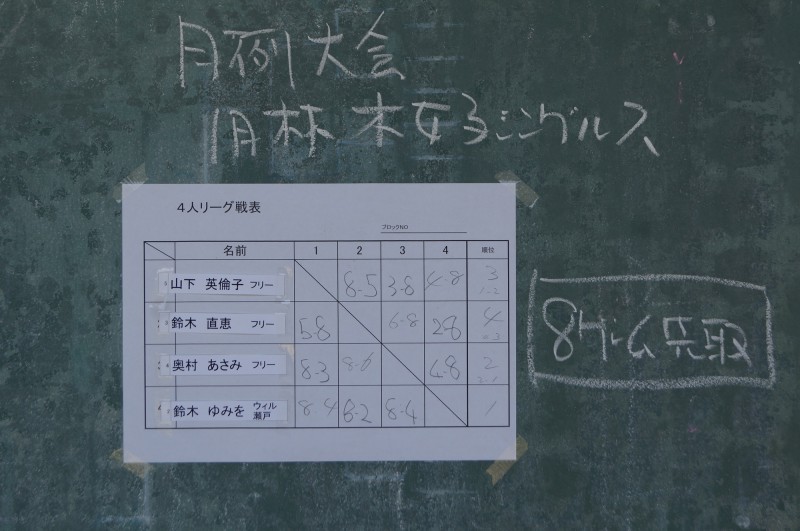 月例大会
1月杯 木女子シングルス
4人リーグ戦表
ブロックNO
名前 1 2 3 4 順位
山下 英倫子 フリー 8-5 3-8 4-8 3
1-2
鈴木 直恵 フリー 5-8 6-8 2-8 4
0-3
奥村 あさみ フリー 8-3 8-6 4-8 2
2-1
4 鈴木 ゆみを ウィル瀬戸 8-4 8-2 8-4 1
8ゲーム先取